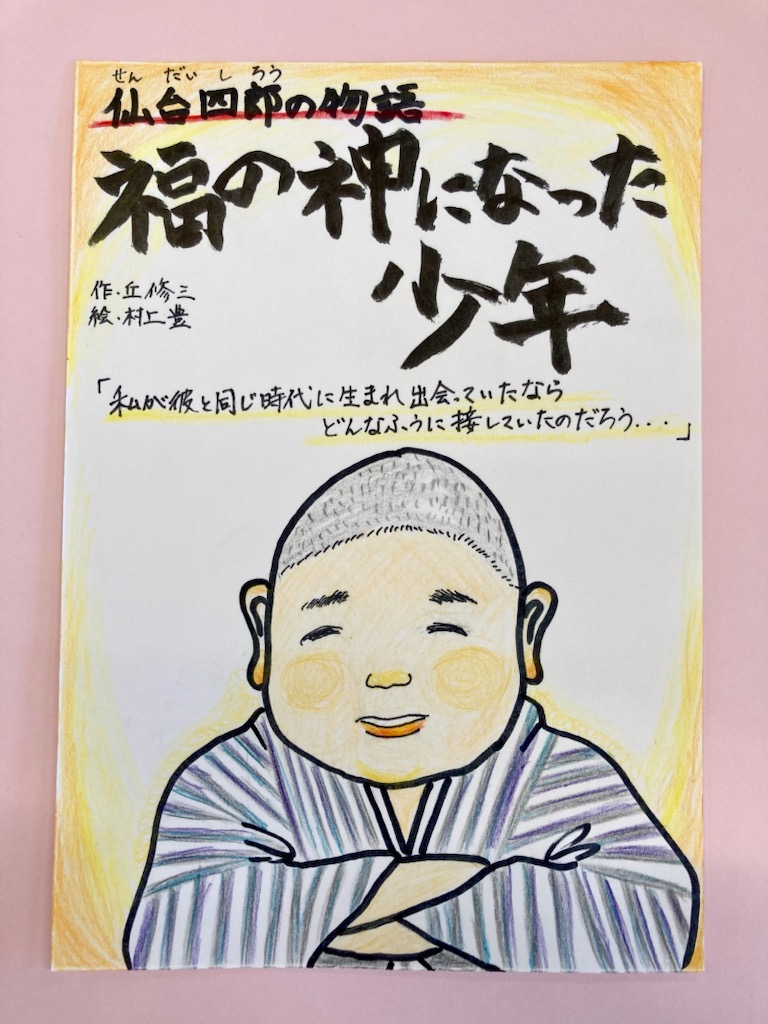 せんだいしろう
仙台四郎の物語
福の神になった
少年
作・丘修三
絵・村上豊
「私が彼と同じ時代に生まれ出会っていたなら
どんなふうに接していたのだろう・・・」